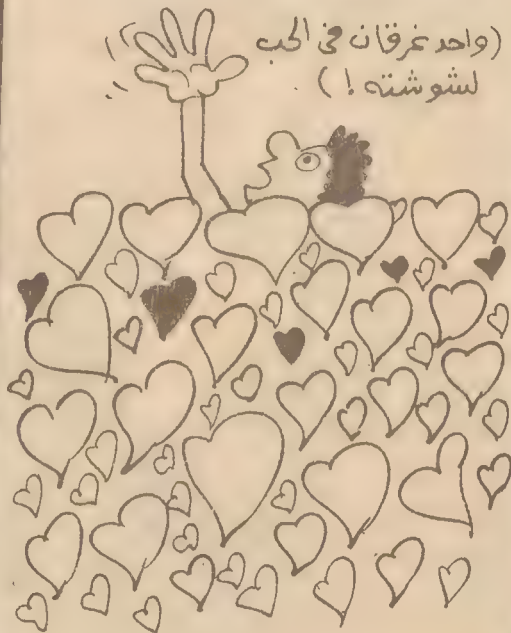 (واحد غرقان فى الحب
لشوشته ! )